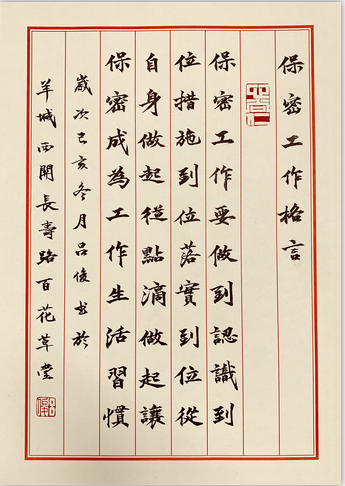 保密工作格言
保密工作要做到認識到
位措施到位落實到位從
自身做起從點滴做起讓
保密成為工作生活習慣
歲次己亥冬月呂俊書於
羊城西關長壽路百花草堂